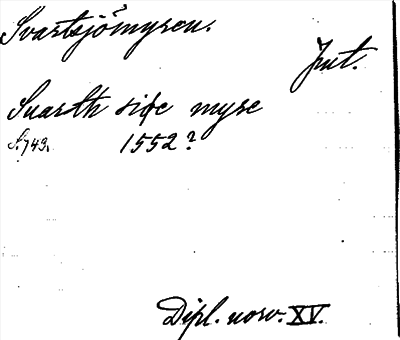 Svartsjömyren.
Jmt.
Suarth siøe myre
S. 743. 1552?
Dipl. norv. XV.